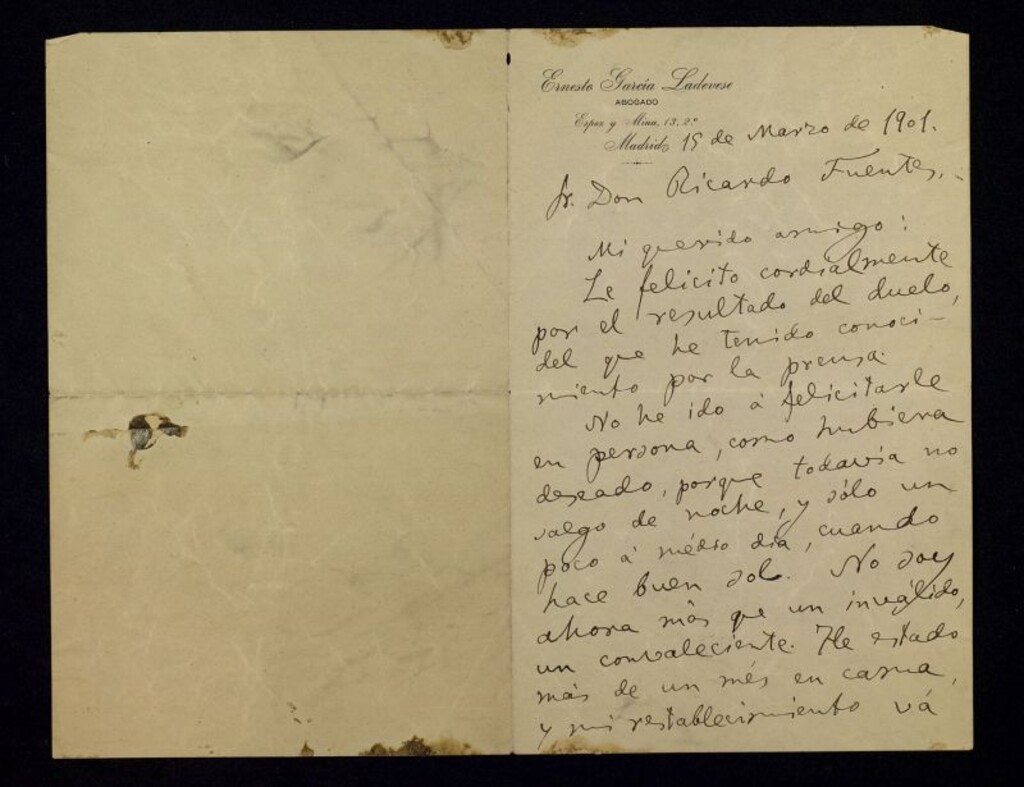 Ernesto García Ladevese
ABOGADO
Espoz y Mina, 13, 2º
Madrid, 15 de Marzo de 1901.
Sr. Don Ricardo Fuentes,
Mi querido amigo:
Le felicito cordialmente
por el resultado del duelo,
del que he tenido conoci-
miento por la prensa.
No he ido á felicitarle
en persona, como hubiera
deseado, porque todavía no
salgo de noche, y sólo un
poco á médio dia, cuando
hace buen sol. No soy
ahora más que un inválido,
un convaleciente. He estado
más de un més en cama,
y mi restablecimiento vá